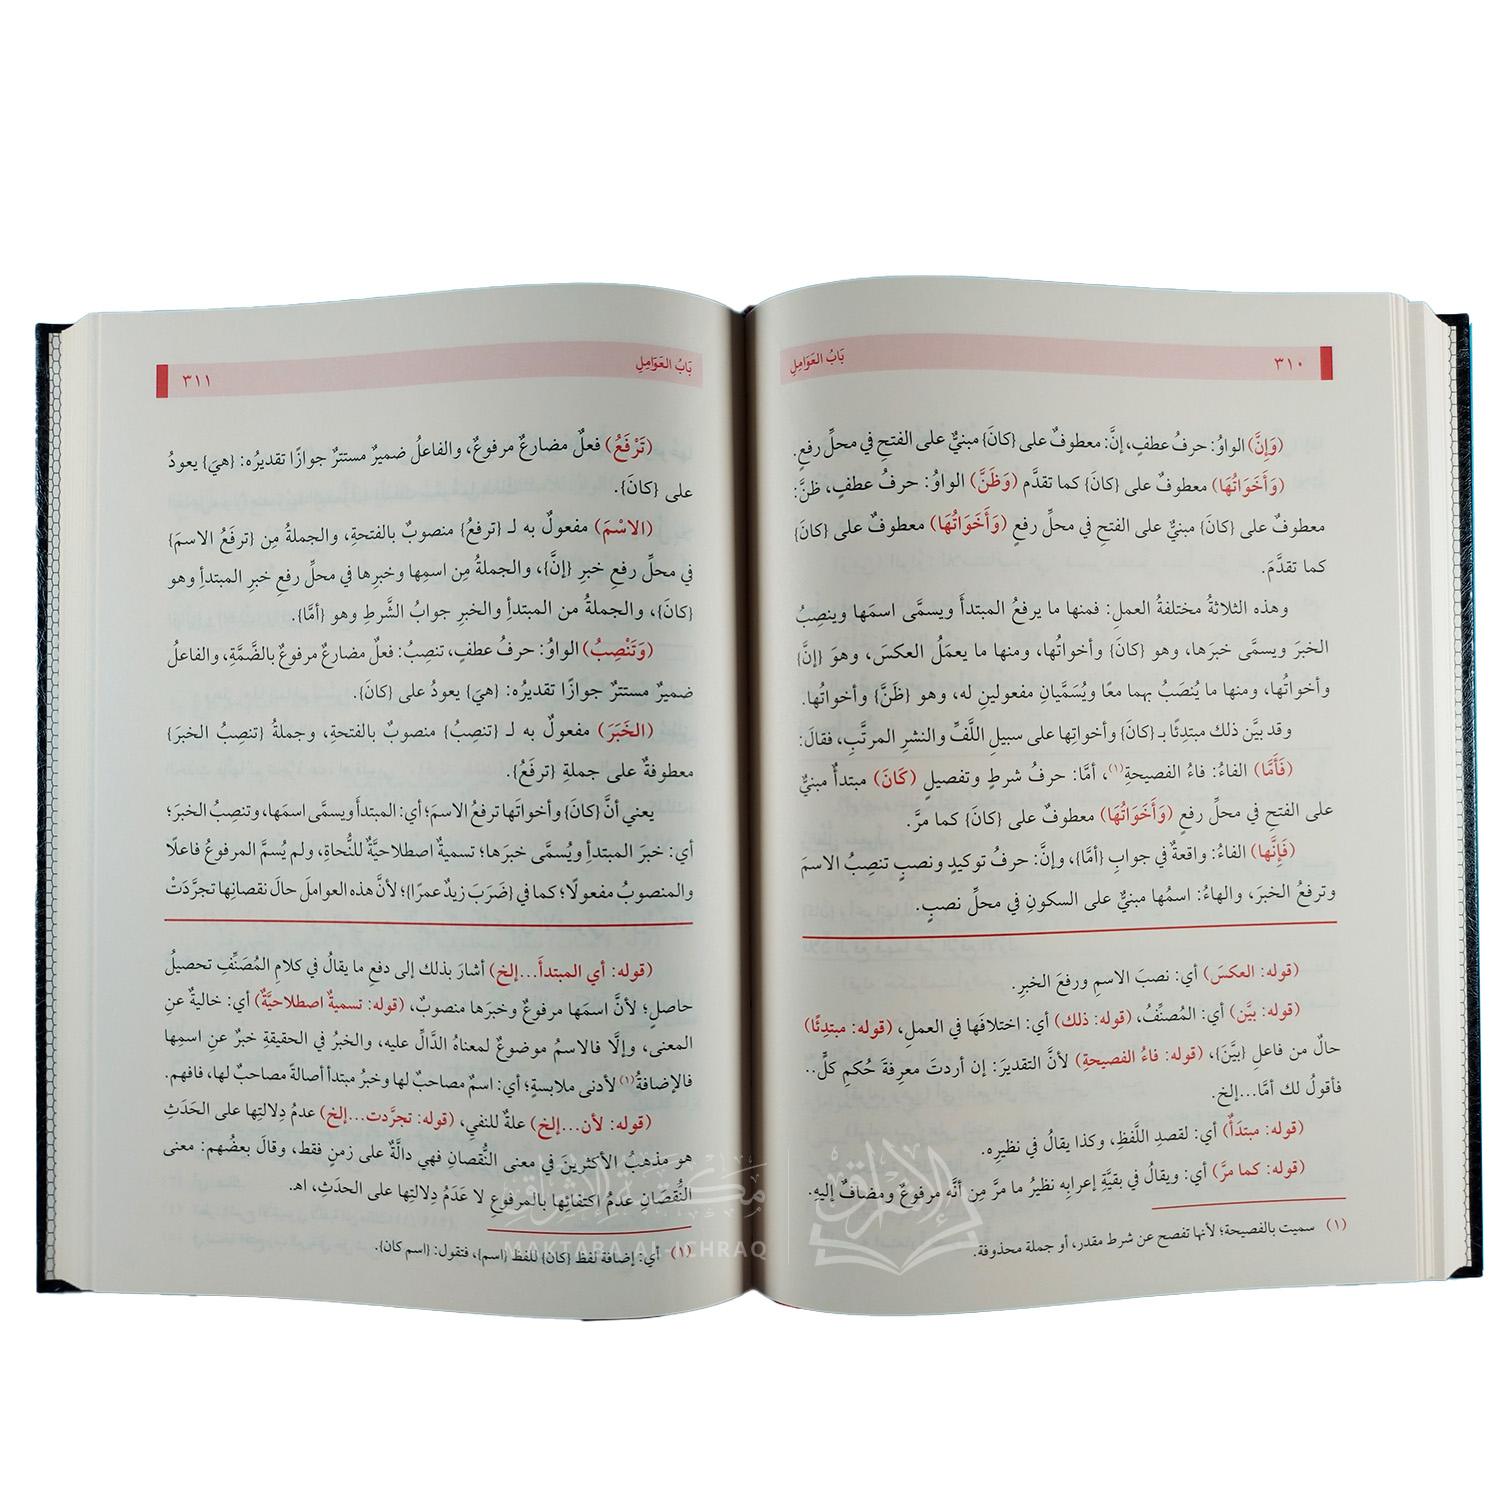 ٣١٠
بَابُ العَوَامِلِ
(وَإِنَّ) الواوُ: حرفُ عطفٍ، إنَّ: معطوفٌ على {كانَ} مبنيٌّ على الفتحِ في محلِّ رفعٍ.
(وَأَخَوَاتُهَا) معطوفٌ على {كانَ} كما تقدَّم (وَظَنَّ) الواوُ: حرفُ عطفٍ، ظنَّ:
معطوفٌ على {كانَ} مبنيٌّ على الفتحِ في محلِّ رفعٍ (وَأَخَوَاتُهَا) معطوفٌ على {كانَ}
كما تقدَّمَ.
وهذه الثلاثةُ مختلفةُ العملِ: فمنها ما يرفعُ المبتدأَ ويسمَّى اسمَها وينصِبُ
الخبرَ ويسمَّى خبرَها، وهو {كانَ} وأخواتُها، ومنها ما يعمَلُ العكسَ، وهوَ {إنَّ}
وأخواتُها، ومنها ما يُنصَبُ بهما معًا ويُسَمَّيانِ مفعولينِ له، وهو {ظَنَّ} وأخواتُها.
وقد بيَّن ذلك مبتدِئًا بـ {كانَ} وأخواتِها على سبيلِ اللَّفِّ والنشرِ المرتَّبِ، فقالَ:
(فَأَمَّا) الفاءُ: فاءُ الفصيحةِ(١)، أمَّا: حرفُ شرطٍ وتفصيلٍ (كَانَ) مبتدأٌ مبنيٌّ
على الفتحِ في محلِّ رفعٍ (وَأَخَوَاتُهَا) معطوفٌ على {كانَ} كما مرَّ.
(فَإِنَّها) الفاءُ: واقعةٌ في جوابِ {أمَّا}، وإنَّ: حرفُ توكيدٍ ونصبٍ تنصِبُ الاسمَ
وترفعُ الخبرَ، والهاءُ: اسمُها مبنيٌّ على السكونِ في محلِّ نصبٍ.
(قوله: العكسَ) أي: نصبَ الاسمِ ورفعَ الخبرِ.
(قوله: بيَّن) أي: المُصنِّفُ، (قوله: ذلك) أي: اختلافَها في العملِ، (قوله: مبتدِئًا)
حالٌ من فاعلِ {بيَّنَ}، (قوله: فاءُ الفصيحةِ) لأنَّ التقديرَ: إن أردتَ معرِفةَ حُكمِ كلٍّ..
فأقولُ لك أمَّا...إلخ.
(قوله: مبتدَأٌ) أي: لقصدِ اللَّفظِ، وكذا يقالُ في نظيرِه.
(قوله: كما مرَّ) أي: ويقالُ في بقيَّةِ إعرابِه نظيرُ ما مرَّ مِن أنَّه مرفوعٌ ومضافٌ إليهِ.
(١) سميت بالفصيحة؛ لأنها تفصح عن شرط مقدر، أو جملة محذوفة.
بَابُ العَوَامِلِ
٣١١
(تَرْفَعُ) فعلٌ مضارعٌ مرفوعٌ، والفاعلُ ضميرٌ مستترٌ جوازًا تقديرُه: {هيَ} يعودُ
على {كانَ}.
(الاسْمَ) مفعولٌ به لـ {ترفعُ} منصوبٌ بالفتحةِ، والجملةُ مِن {ترفَعُ الاسمَ}
في محلِّ رفعِ خبرِ {إنَّ}، والجملةُ مِن اسمِها وخبرِها في محلِّ رفعِ خبرِ المبتدأِ وهو
{كانَ}، والجملةُ من المبتدأِ والخبرِ جوابُ الشَّرطِ وهو {أمَّا}.
(وَتَنْصِبُ) الواوُ: حرفُ عطفٍ، تنصِبُ: فعلٌ مضارعٌ مرفوعٌ بالضَّمَّةِ، والفاعلُ
ضميرٌ مستترٌ جوازًا تقديرُه: {هيَ} يعودُ على {كانَ}.
(الخَبَرَ) مفعولٌ به لـ {تنصِبُ} منصوبٌ بالفتحةِ، وجملةُ {تنصِبُ الخبرَ}
معطوفةٌ على جملةِ {ترفَعُ}.
يعني أنَّ {كانَ} وأخواتَها ترفعُ الاسمَ؛ أي: المبتدأَ ويسمَّى اسمَها، وتنصِبُ الخبرَ؛
أي: خبرَ المبتدأِ ويُسمَّى خبرَها؛ تسميةٌ اصطلاحيَّةٌ للنُّحاةِ، ولم يُسمَّ المرفوعُ فاعلًا
والمنصوبُ مفعولًا؛ كما في {ضَرَبَ زيدٌ عمرًا}؛ لأنَّ هذه العواملَ حالَ نقصانِها تجرَّدَتْ
(قوله: أي المبتدأَ...إلخ) أشارَ بذلك إلى دفعِ ما يقالُ في كلامِ المُصَنِّفِ تحصيلُ
حاصلٍ؛ لأنَّ اسمَها مرفوعٌ وخبرَها منصوبٌ، (قوله: تسميةٌ اصطلاحيَّةٌ) أي: خاليةٌ عنِ
المعنى، وإلَّا فالاسمُ موضوعٌ لمعناهُ الدَّالِّ عليه، والخبرُ في الحقيقةِ خبرٌ عنِ اسمِها
فالإضافةُ(١) لأدنى ملابسةٍ؛ أي: اسمٌ مصاحبٌ لها وخبرُ مبتدأ أصالةً مصاحبٌ لها، فافهم.
(قوله: لأن...إلخ) علةٌ للنفيِ، (قوله: تجرَّدت...إلخ) عدمُ دِلالتِها على الحَدَثِ
هو مذهبُ الأكثرينَ في معنى النُّقصانِ فهي دالَّةٌ على زمنٍ فقط، وقالَ بعضُهم: معنى
النُّقصَانِ عدمُ اكتفائِها بالمرفوعِ لا عَدَمُ دِلالتِها على الحدَثِ، اهـ.
(١) أي: إضافة لفظ {كان} للفظ {اسم}، فتقول: {اسم كان}.
مكتبة الإشراق
الإشراق
MAKTABA AL-ICHRAQ